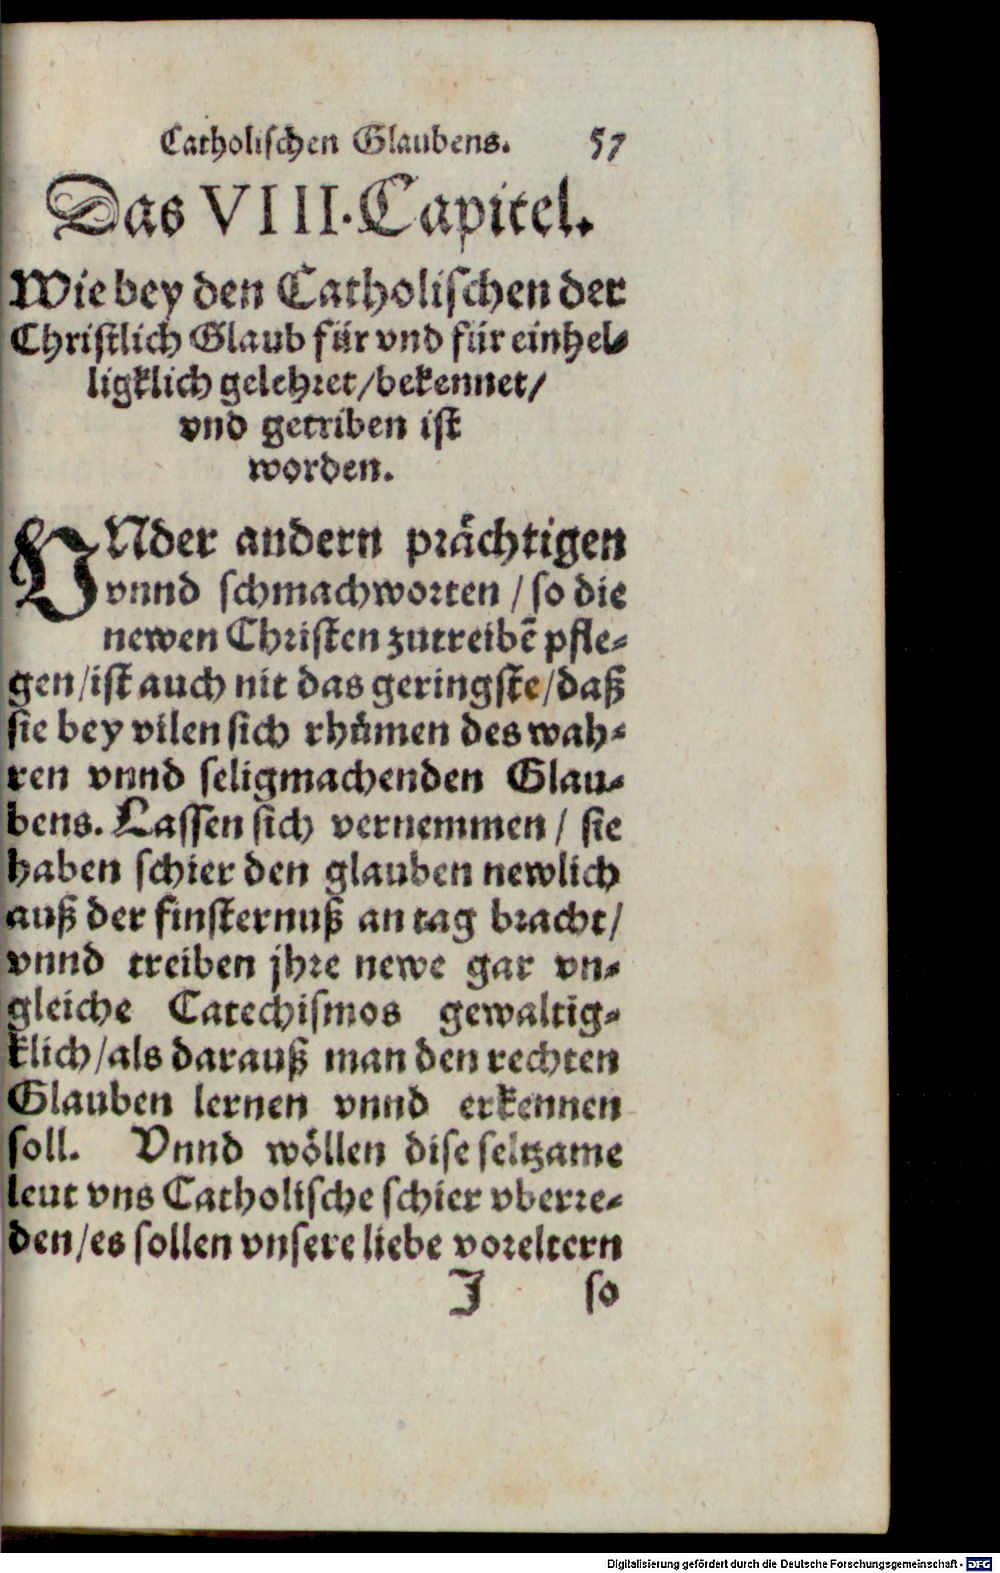 Catholischen Glaubens. 57
Das VIII. Capitel.
Wie bey den Catholischen der
Christlich Glaub für vnd für einhel-
ligklich gelehret/bekennet/
vnd getriben ist
worden.
VNder andern prächtigen
vnnd schmachworten / so die
newen Christen zutreibẽ pfle-
gen/ist auch nit das geringste/daß
sie bey vilen sich rhůmen des wah-
ren vnnd seligmachenden Glau-
bens. Lassen sich vernemmen / sie
haben schier den glauben newlich
auß der finsternuß an tag bracht/
vnnd treiben jhre newe gar vn-
gleiche Catechismos gewaltig-
klich/als darauß man den rechten
Glauben lernen vnnd erkennen
soll. Vnnd wöllen dise seltzame
leut vns Catholische schier vberre-
den/es sollen vnsere liebe voreltern
J so
Digitalisierung gefördert durch die Deutsche Forschungsgemeinschaft - DFG